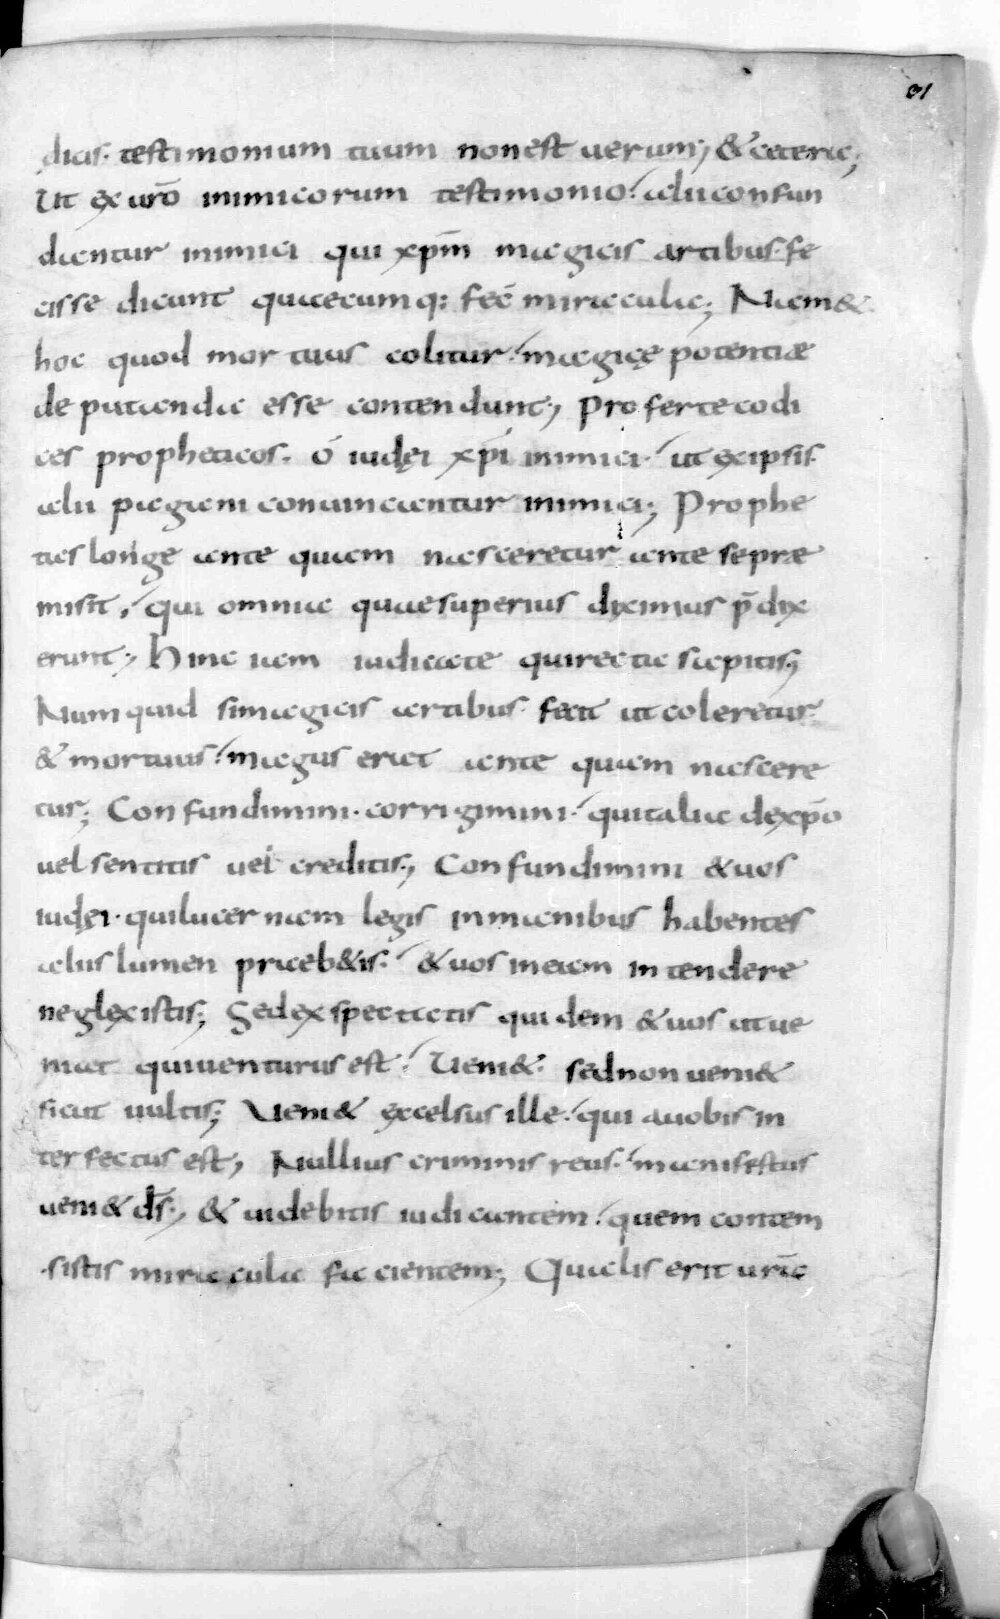 91
dicis. testimonium tuum non est uerum; & cetera;
Ut ex uro᷒ inimicorum testimonio. alii confun
dantur inimici qui xp̄m magicis artibus. fe
cisse dicunt quaecumq; fec̄ miracula; Nam &
hoc quod mortuus colitur. magicę potentiæ
deputanda esse contendunt; Proferte codi
ces propheticos. ó iudęi xp̄i inimici. ut ex ipsis
alii pagani conuincantur inimici; Prophe
tas longe ante quam nasceretur ante se præ
misit, qui omnia quae superius diximus p̄dix
erunt; Hinc iam iudicate qui recta sapitis;
Numquid si magicis artibus fecit ut coleretur
& mortuus. magus erat ante quam nascere
tur; Confundimini. corrigimini. qui talia de xp̄o
uel sentitis uel creditis; Confundimini & uos
iudęi. qui lucernam legis in manibus habentes
aliis lumen praeb&is. & uos in eam intendere
neglexistis; Sed exspectatis quidem & uos ut ue
niat qui uenturus est. Ueni&. sed non ueni&
sicut uultis; Ueni& excelsus ille. qui a uobis in
terfectus est; Nullius criminis reus. manifestus
ueni& d̄s; & uidebitis iudicantem. quem contem
sistis miracula facientem; Qualis erit ur̄a